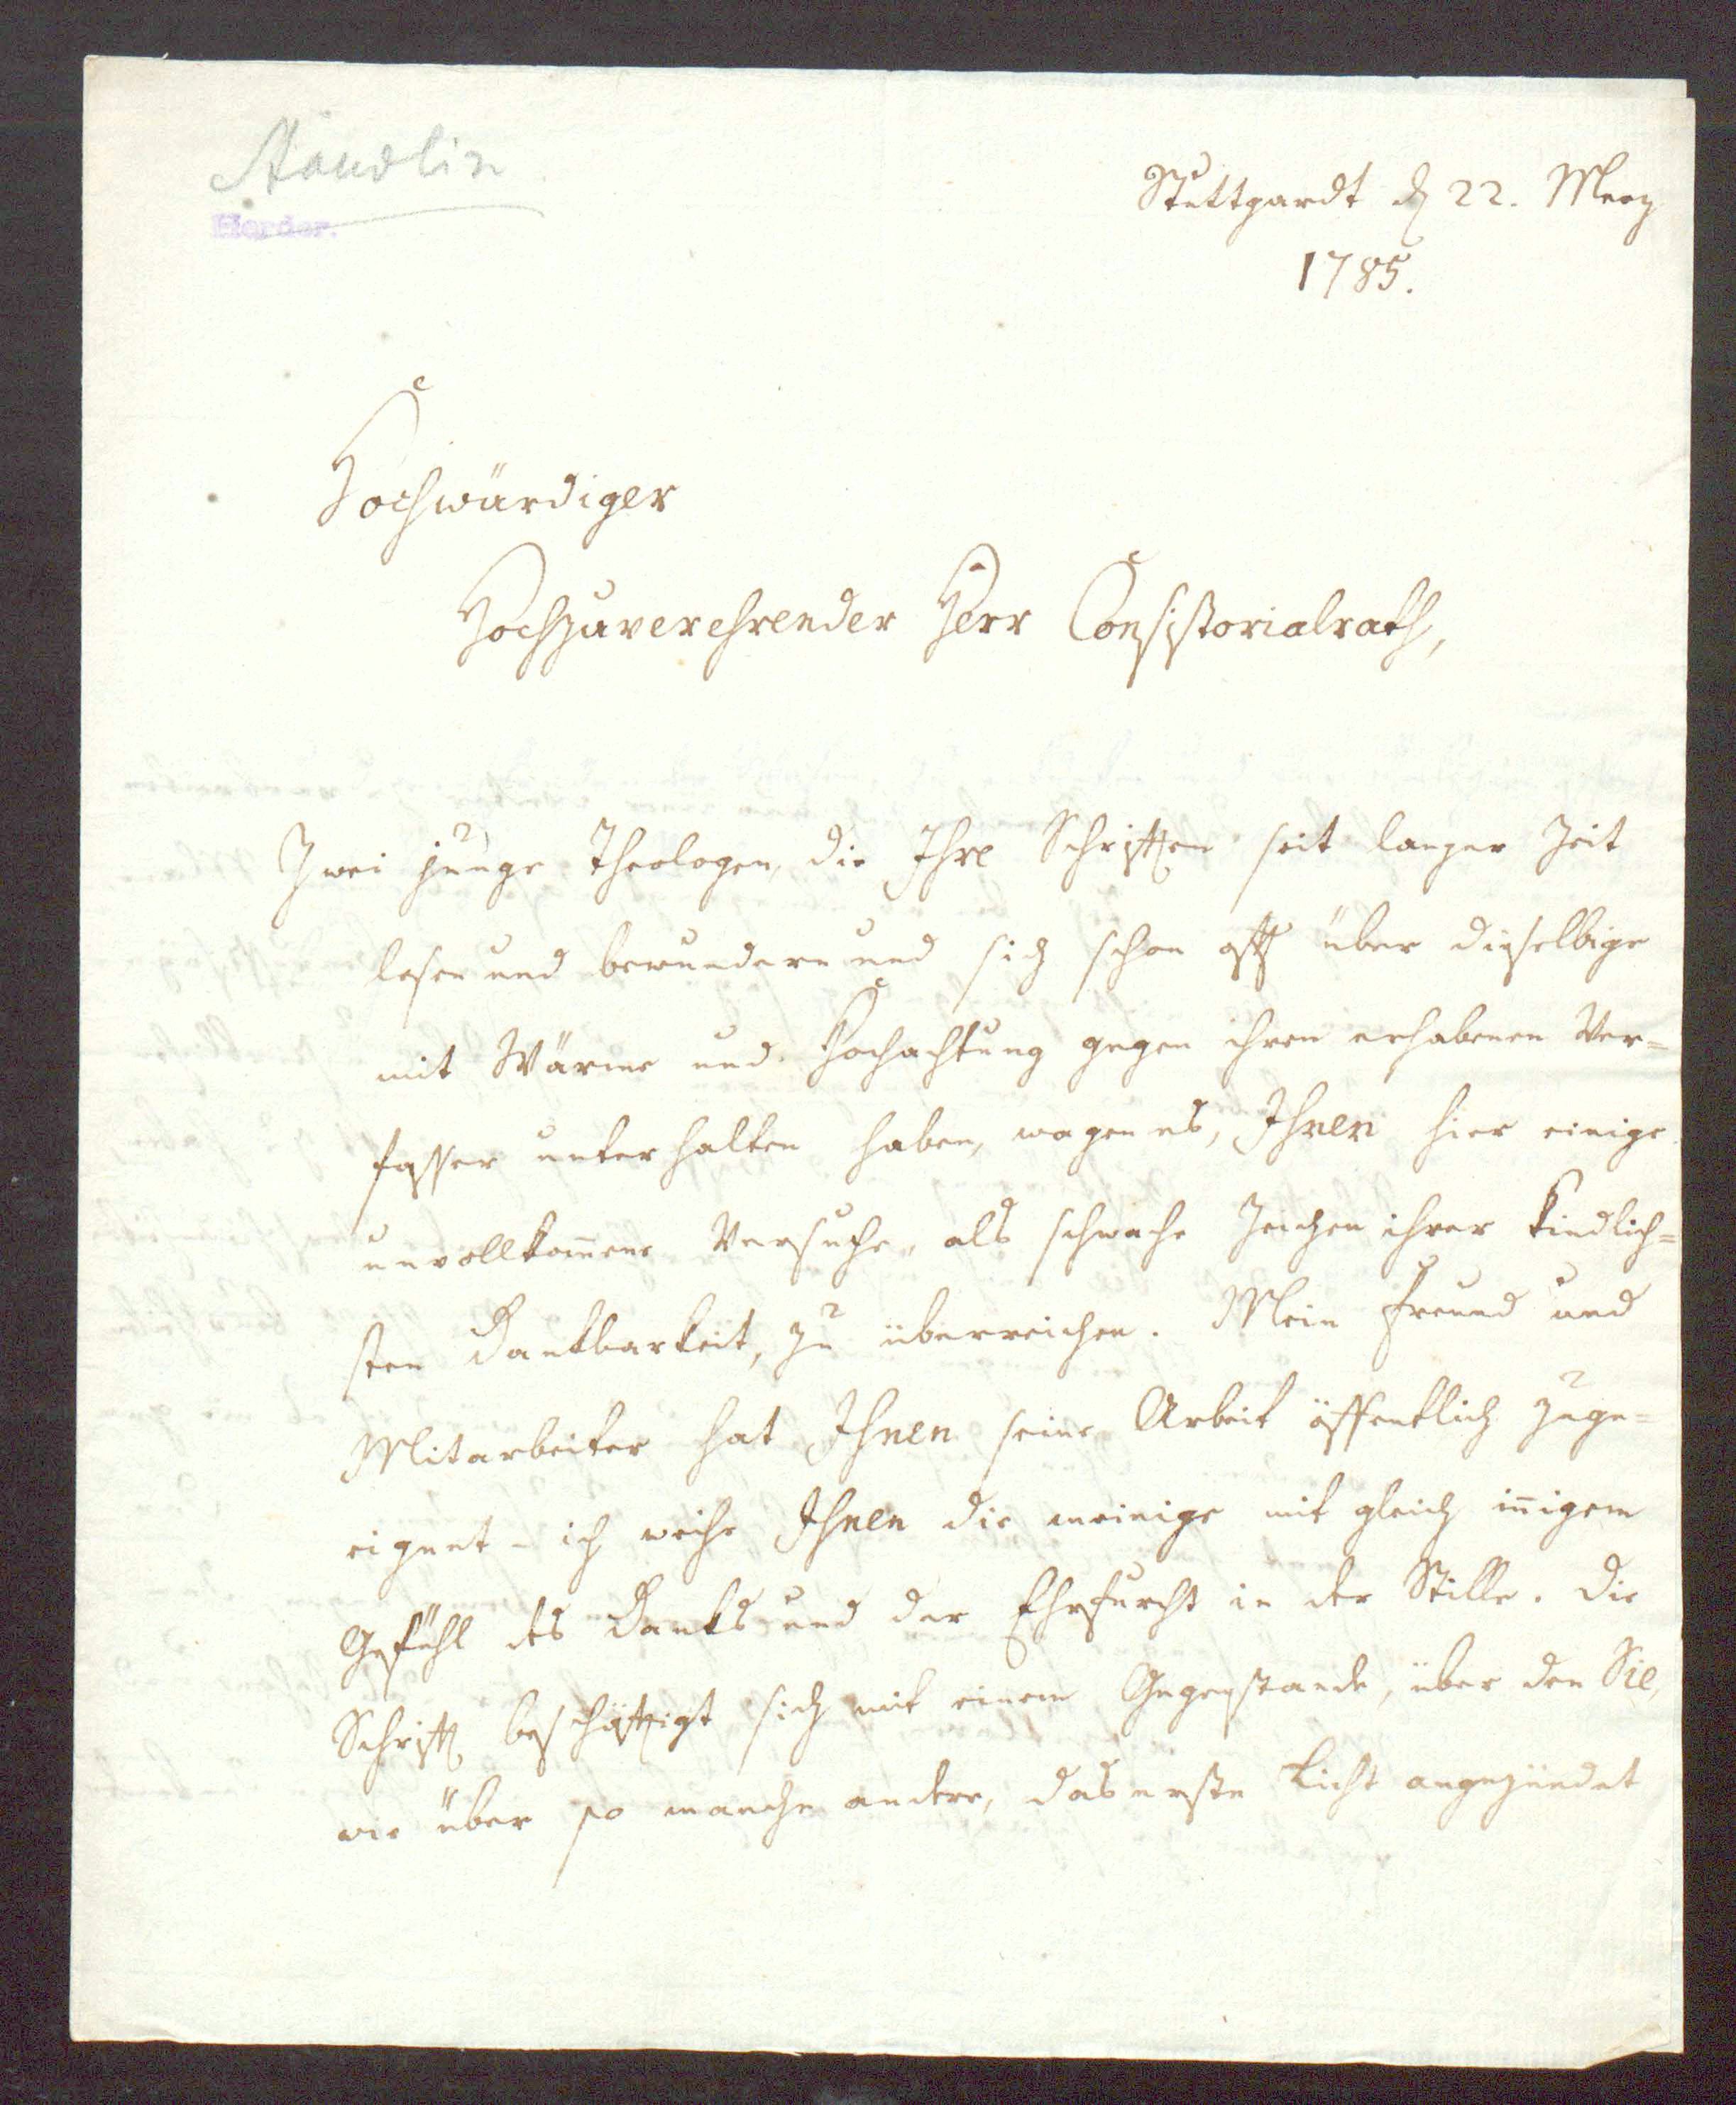 Stäudlin
Herder.
Stuttgardt d. 22. Merz
1785.
Hochwürdiger
Hochzuverehrender Herr Consistorialrath,
Zwei junge Theologen, die Ihre Schriften seit langer Zeit
lesen und bewundern und sich schon oft über dieselbige
mit Wärme und Hochachtung gegen ihren erhabenen Ver=
fasser unterhalten haben, wagen es, Ihnen hier einige
unvollkom̄ene Versuche, als schwache Zeichen ihrer kindlich=
sten Dankbarkeit, zu überreichen. Mein Freund und
Mitarbeiter hat Ihnen seine Arbeit öffentlich zuge=
eignet - ich weihe Ihnen die meinige mit gleich in̄igem
Gefühl des Danks und der Ehrfurcht in der Stille. Die
Schrift beschäftigt sich mit einem Gegenstande, über den Sie,
wie über so manche andere, das erste Licht angezündet